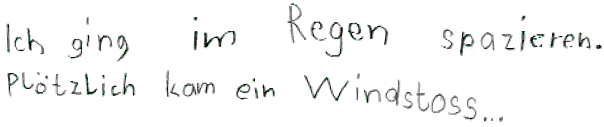 Ich ging im Regen spazieren.
Plötzlich kam ein Windstoss...